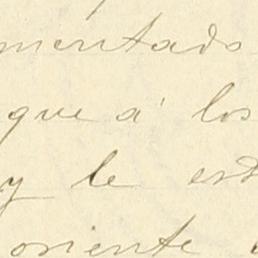 mentado
que á los
y le est
oriente